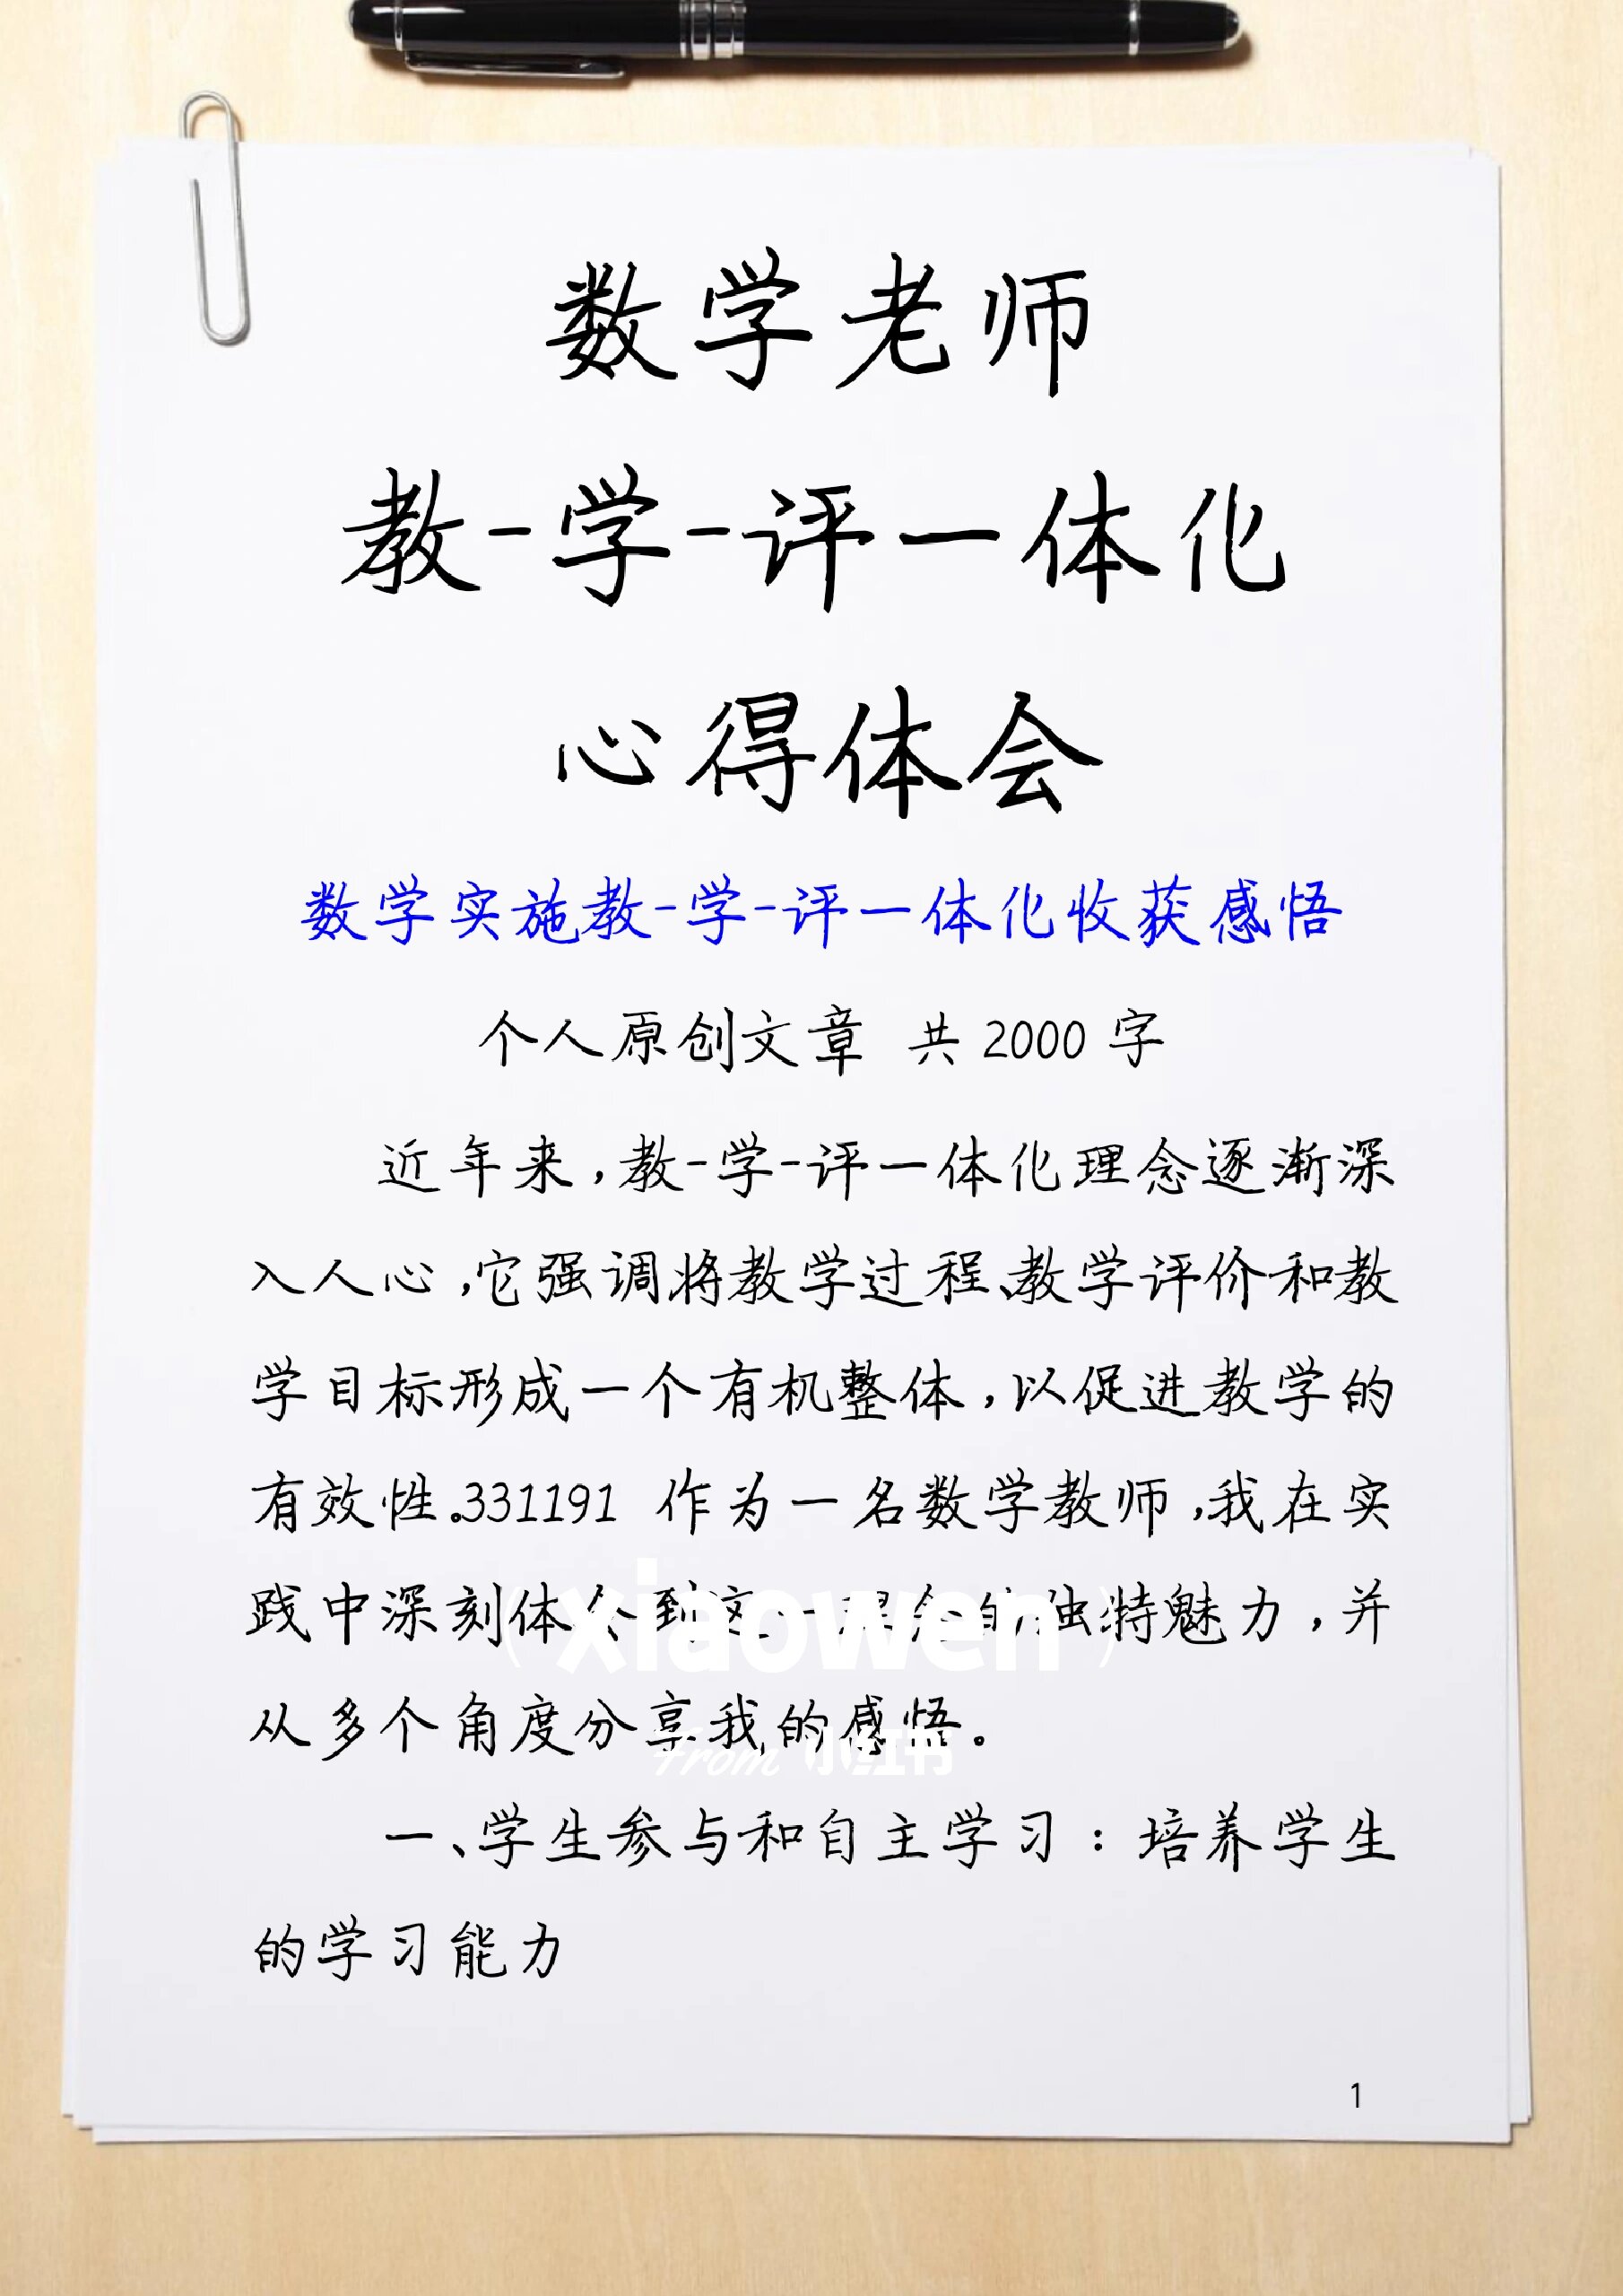 数学老师
教-学-评一体化
心得体会
数学实施教-学-评一体化收获感悟
个人原创文章 共2000字
近年来，教-学-评一体化理念逐渐深
入人心，它强调将教学过程、教学评价和教
学目标形成一个有机整体，以促进教学的
有效性。331191 作为一名数学教师，我在实
践中深刻体会到这一理念的独特魅力，并
（xiaowen）
从多个角度分享我的感悟。
from 小红书
一、学生参与和自主学习：培养学生
的学习能力
1